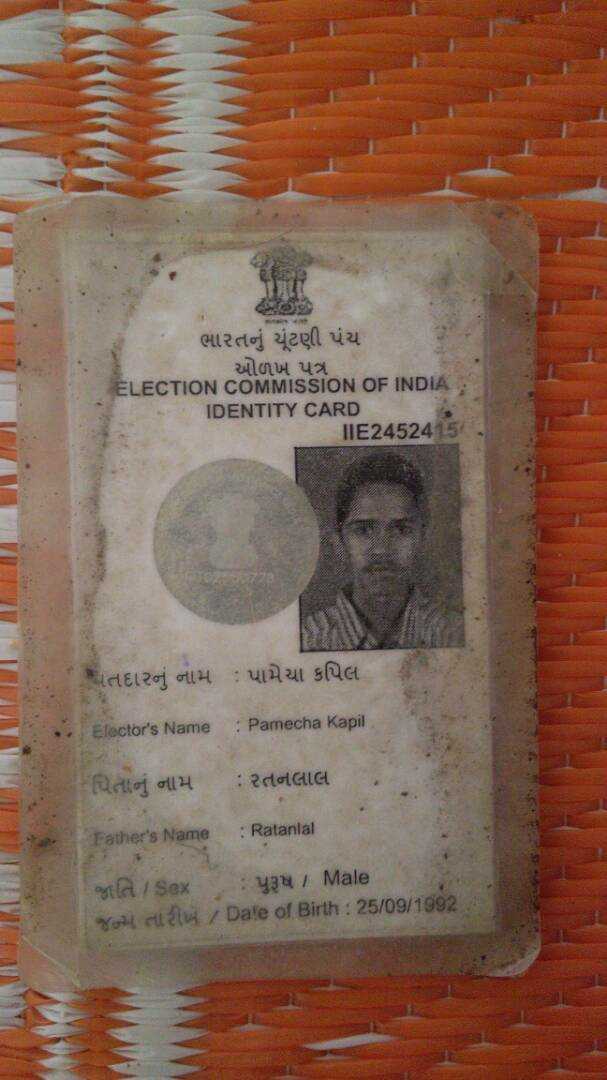 ભારતનું ચૂંટણી પંચ
ઓળખ પત્ર
ELECTION COMMISSION OF INDIA
IDENTITY CARD
IIE2452415
મતદારનું નામ : પામેચા કપિલ
Elector's Name : Pamecha Kapil
પિતાનું નામ : રતનલાલ
Father's Name : Ratanlal
જાતિ / Sex : પુરૂષ / Male
જન્મ તારીખ / Date of Birth : 25/09/1992